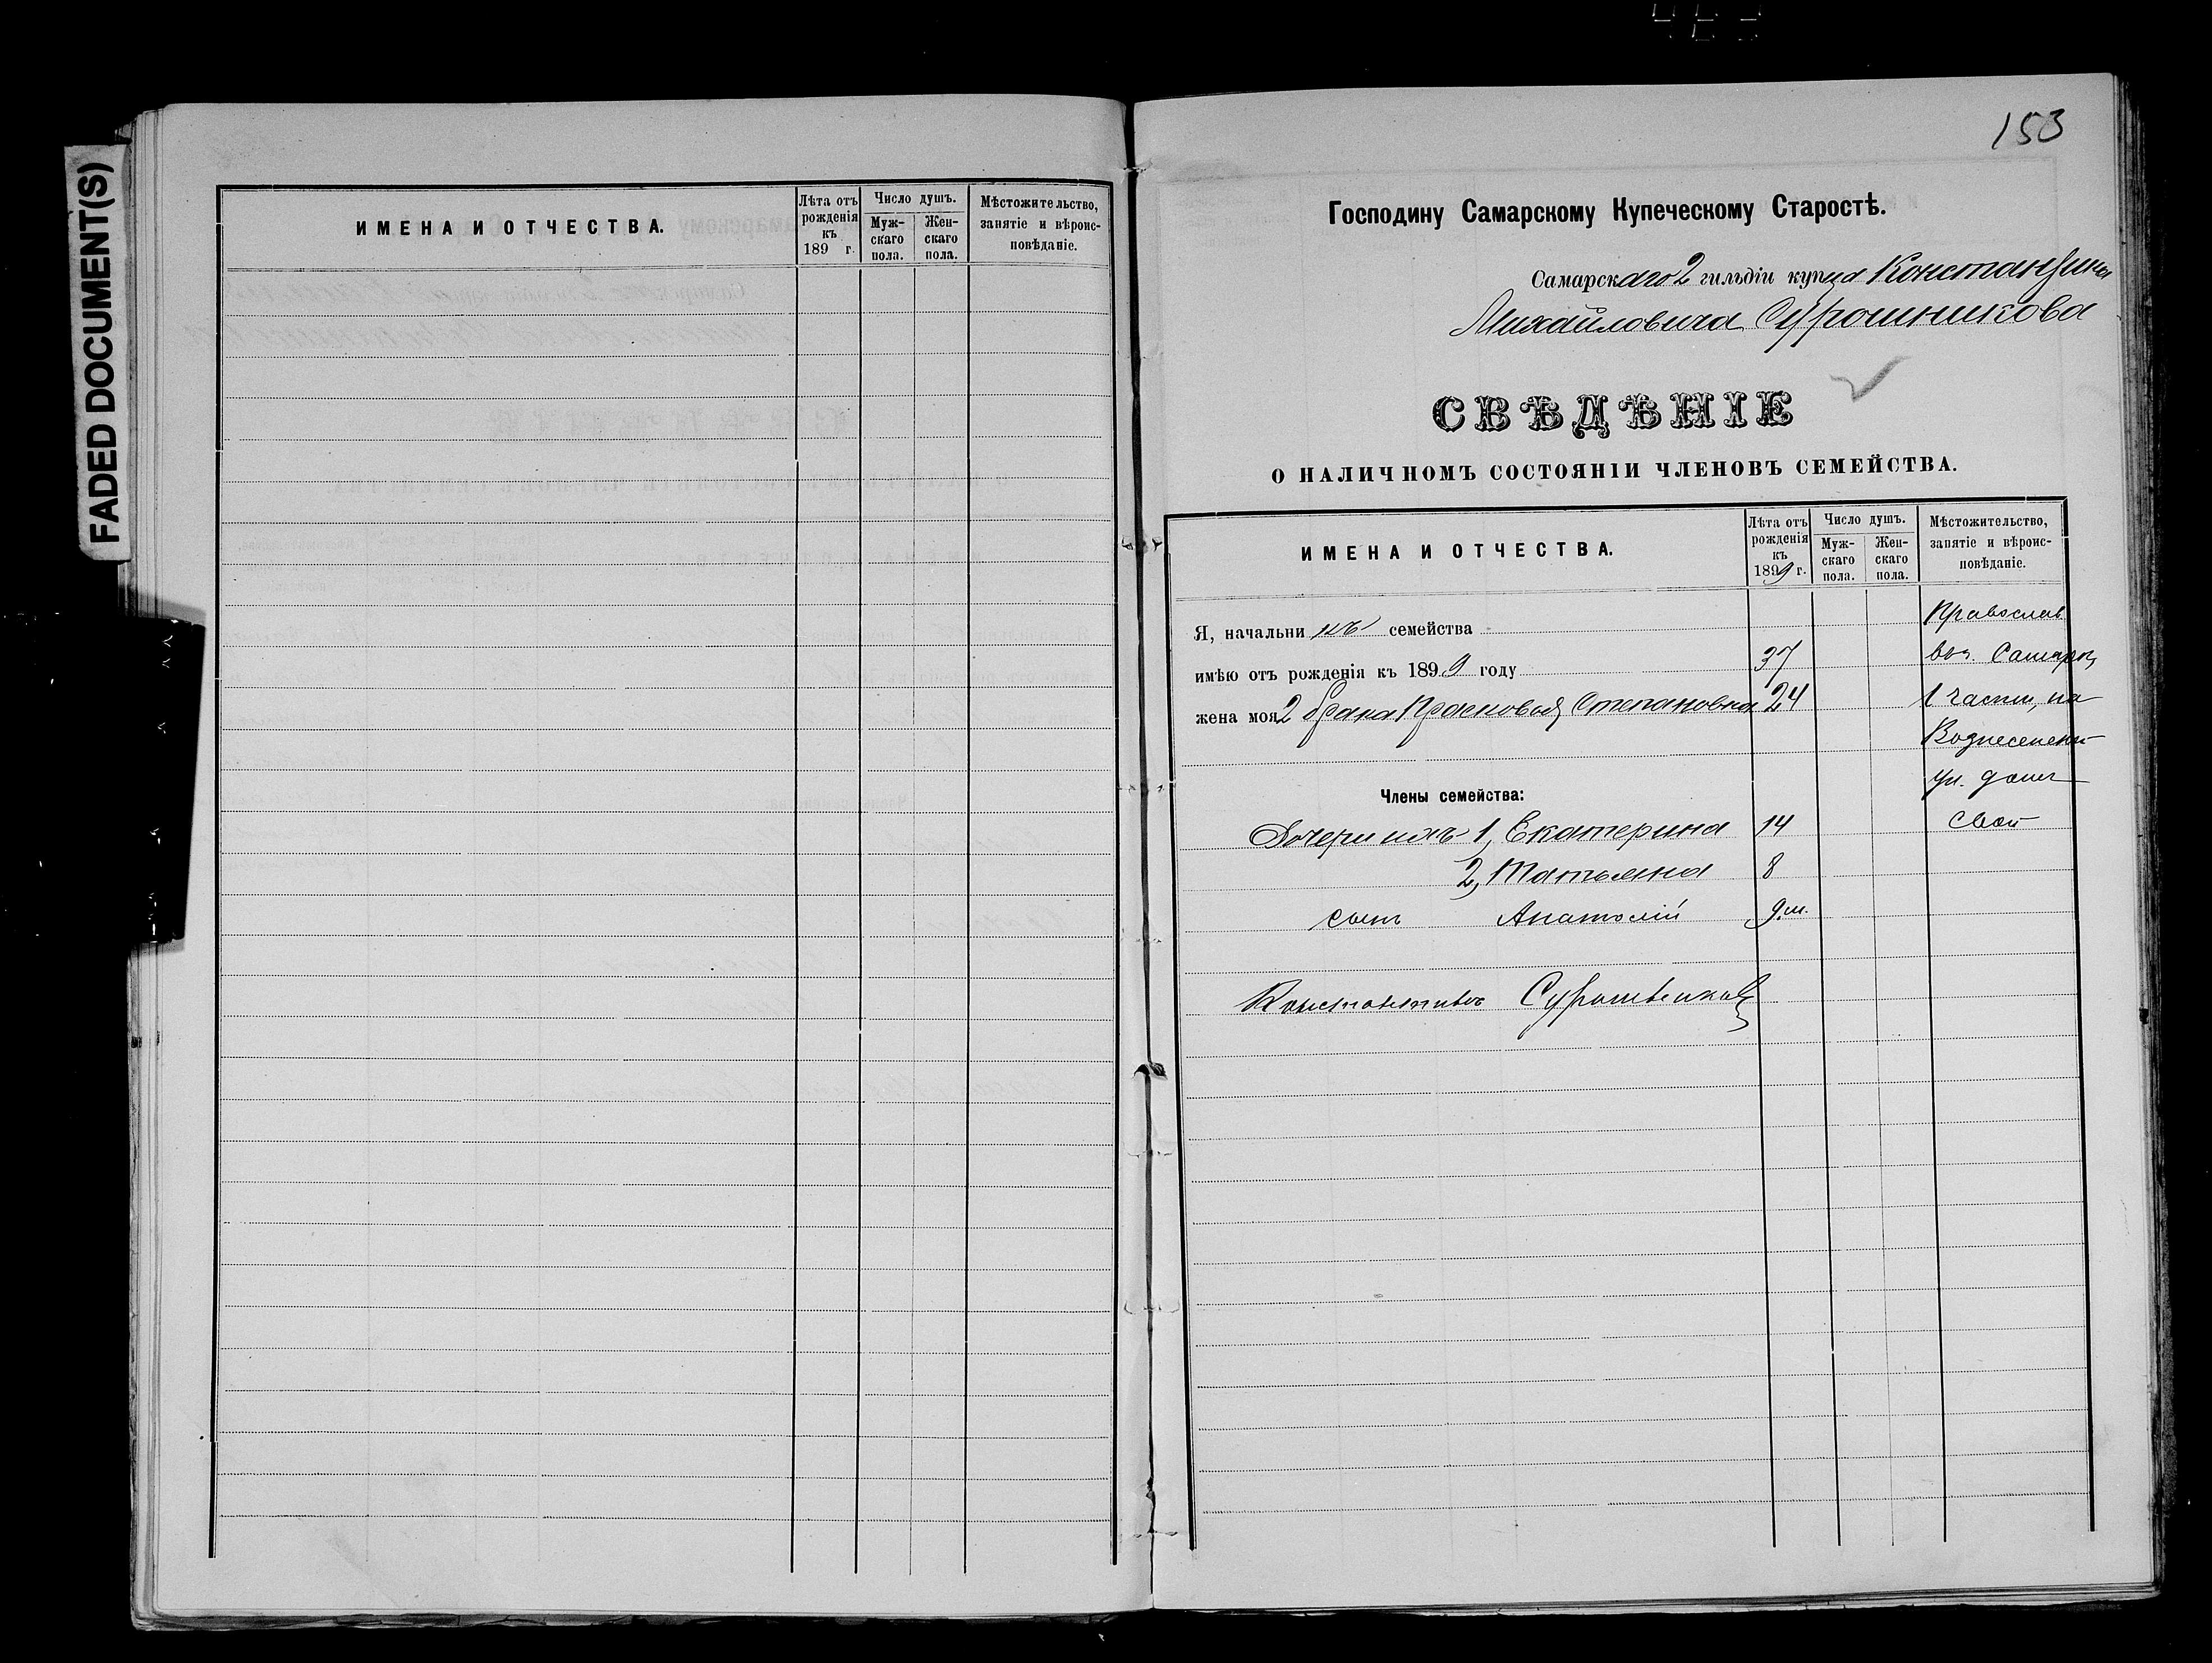 FADED DOCUMENT(S)
ИМЕНА И ОТЧЕСТВА.
Лѣта отъ рожденія къ 189 г.
Число душъ.
Муж-скаго пола.
Жен-скаго пола.
Мѣстожительство, занятіе и вѣроис-повѣданіе.
153
Господину Самарскому Купеческому Старостѣ.
Самарскаго 2 гильдіи купца Константина
Михайловича Сурошникова
СВѢДѢНІЕ
О НАЛИЧНОМЪ СОСТОЯНІИ ЧЛЕНОВЪ СЕМЕЙСТВА.
ИМЕНА И ОТЧЕСТВА.
Лѣта отъ рожденія къ 1899 г.
Число душъ.
Муж-скаго пола.
Жен-скаго пола.
Мѣстожительство, занятіе и вѣроис-повѣданіе.
Православ
Я, начальникъ семейства
имѣю отъ рожденія къ 1899 году 37 Самарѣ,
жена моя 2 брака Прасковья Степановна 24 1 части, на
Вознесенской
ул. домъ
Члены семейства:
Дочери ихъ 1, Екатерина 14 свой
2, Татьяна 8
сынъ Анатолій 9 м.
Константинъ Сурошниковъ